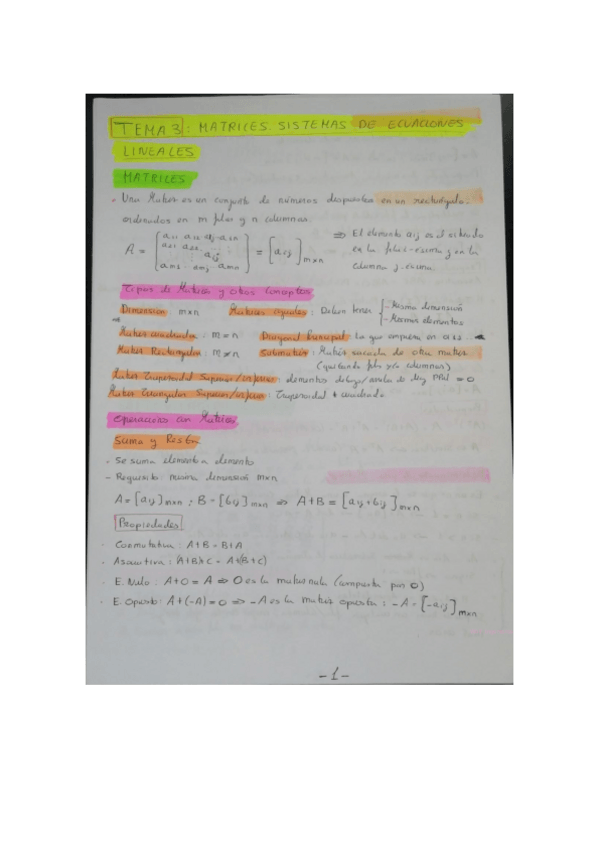 TEMA 3: MATRICES. SISTEMAS DE ECUACIONES
LINEALES
MATRICES
· Una Matriz es un conjunto de números dispuestos en un rectángulo.
ordenados en m filas y n columnas.
A = [a11 a12 aij a1n a21 a22 ... aij am1 ... amj amn] = [aij] m×n ⇒ El elemento aij es el situado
en la fila i-esima y en la
columna j-esima.
Tipos de Matriz y otros Conceptos
Dimension: m×n Matrices iguales: Deben tener { - Misma dimensión
- Mismos elementos
Matriz cuadrada: m=n Diagonal Principal: La que empieza en a11
Matriz Rectangular: m≠n Submatriz: Matriz sacada de otra matriz
(quitando filas y/o columnas)
Matriz Trapezoidal Superior/inferior: elementos debajo/arriba de diag ppal = 0
Matriz Triangular Superior/inferior: Trapezoidal + cuadrada
Operaciones con Matrices
Suma y Resta
- Se suma elemento a elemento
- Requisito: misma dimensión m×n
A=[aij]m×n ; B=[bij]m×n ⇒ A+B = [aij+bij]m×n
Propiedades
· Conmutativa: A+B = B+A
· Asociativa: (A+B)+C = A+(B+C)
· E. Nulo: A+0 = A ⇒ 0 es la matriz nula (compuesta por 0)
· E. Opuesto: A+(-A)=0 ⇒ -A es la matriz opuesta: -A=[-aij]m×n
-1-